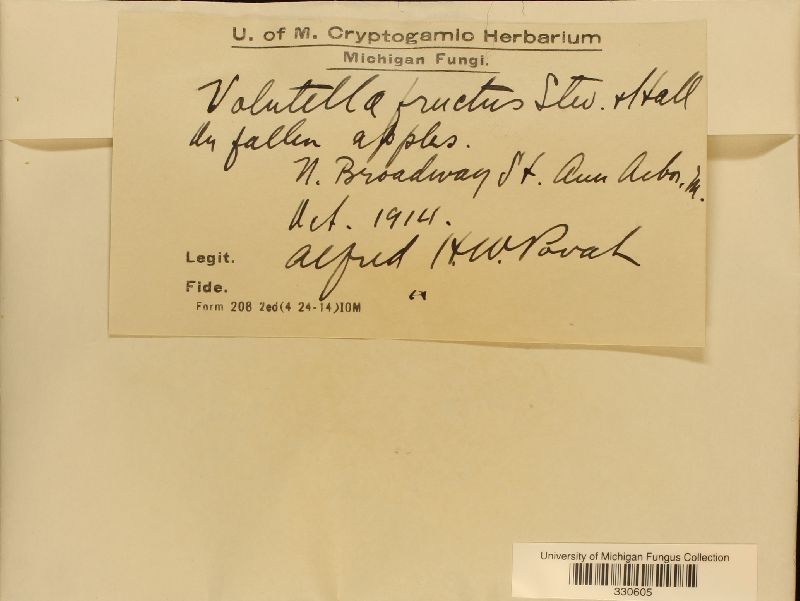 U. of M. Cryptogamic Herbarium
Michigan Fungi.
Volutella fructus Stev. & Hall
On fallen apples.
N. Broadway St. Ann Arbor, M.
Oct. 1914.
Legit. Alfred H. W. Povah
Fide. "
Form 208 2ed(4 24-14)10M
University of Michigan Fungus Collection
330605